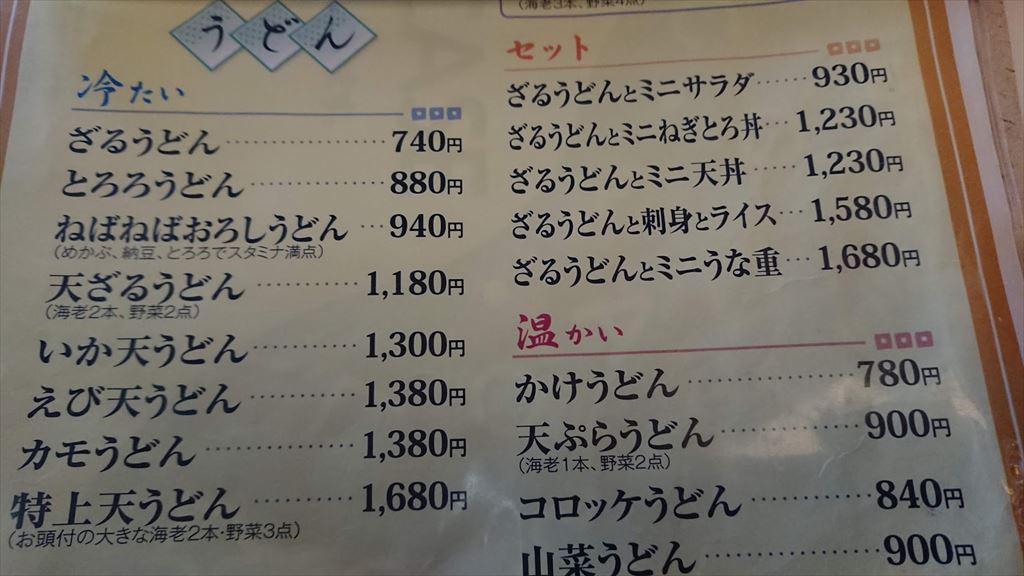 うどん
冷たい
ざるうどん 740円
とろろうどん 880円
ねばねばおろしうどん 940円
(めかぶ、納豆、とろろでスタミナ満点)
天ざるうどん 1,180円
(海老2本、野菜2点)
いか天うどん 1,300円
えび天うどん 1,380円
カモうどん 1,380円
特上天うどん 1,680円
(お頭付の大きな海老2本・野菜3点)
(海老3本、野菜4点)
セット
ざるうどんとミニサラダ 930円
ざるうどんとミニねぎとろ丼 1,230円
ざるうどんとミニ天丼 1,230円
ざるうどんと刺身とライス 1,580円
ざるうどんとミニうな重 1,680円
温かい
かけうどん 780円
天ぷらうどん 900円
(海老1本、野菜2点)
コロッケうどん 840円
山菜うどん 900円